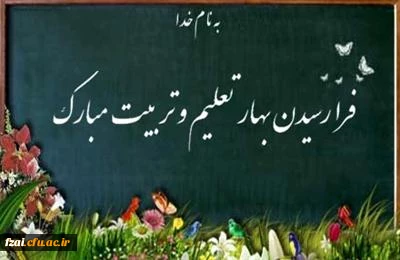 به نام خدا
فرا رسیدن بهار تعلیم و تربیت مبارک
fzai.cfu.ac.ir